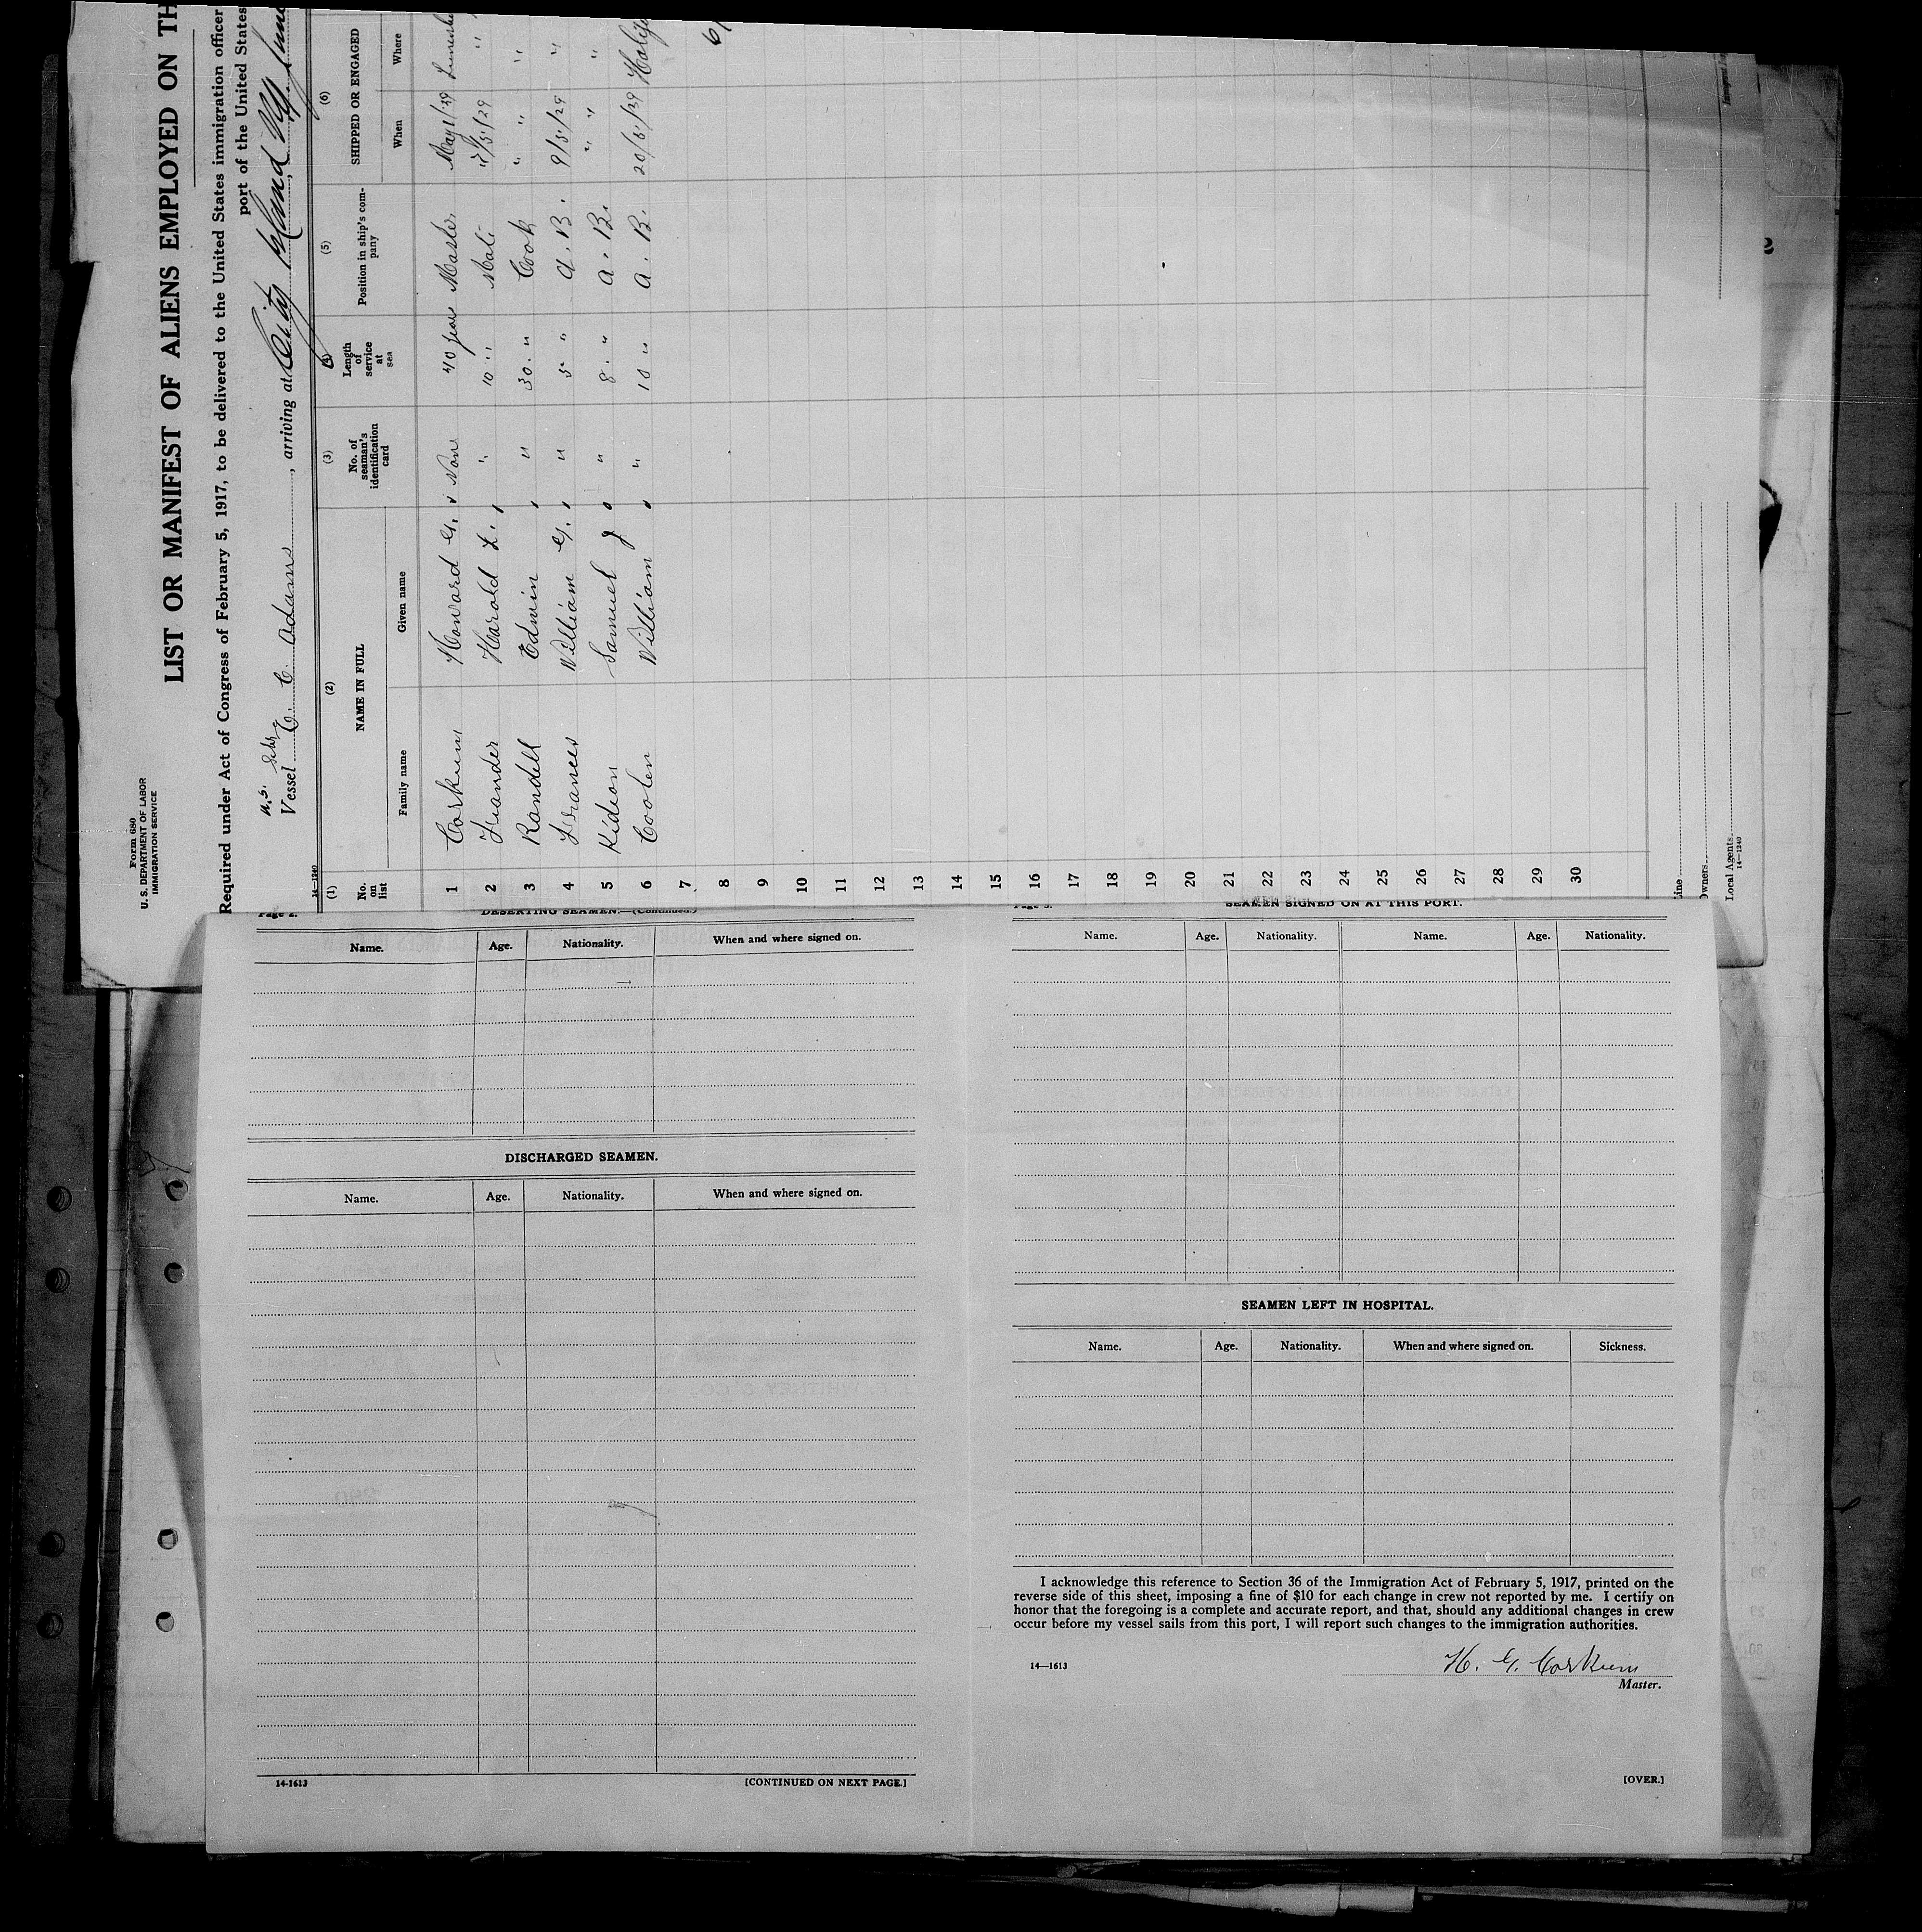 Form 680
U. S. DEPARTMENT OF LABOR
IMMIGRATION SERVICE
LIST OR MANIFEST OF ALIENS EMPLOYED ON TH
Required under Act of Congress of February 5, 1917, to be delivered to the United States immigration officer
port of the United States
U.S. Schr
Vessel C. C. Adams, arriving at City Island N.Y. June
14—1240
(1) (2) (3) (4) (5) (6)
No. on list NAME IN FULL No. of seaman's identification card Length of service at sea Position in ship's company SHIPPED OR ENGAGED
Family name Given name When Where
1 Corkum Howard G. Non 40 years Master May 1/29
2 Harold L. " 10 " Mate /5/29 "
3 Randell Edwin " 30 " Cook " "
4 Frances William G. " 5 " A. B. 9/5/29 "
5 Kidson Samuel J " 8 " A. B. " "
6 Coolen William " 10 " A. B. 20/5/29 Halifa
7
8
9
10
11
12
13
14
15
16
17
18
19
20
21
22
23
24
25
26
27
28
29
30
ine
Owners
Local Agents
14—1240
Page 2.
DESERTING SEAMEN.—(Continued.)
Name. Age. Nationality. When and where signed on.
DISCHARGED SEAMEN.
Name. Age. Nationality. When and where signed on.
14-1613 [CONTINUED ON NEXT PAGE.]
Page 3.
SEAMEN SIGNED ON AT THIS PORT.
Name. Age. Nationality. Name. Age. Nationality.
SEAMEN LEFT IN HOSPITAL.
Name. Age. Nationality. When and where signed on. Sickness.
I acknowledge this reference to Section 36 of the Immigration Act of February 5, 1917, printed on the
reverse side of this sheet, imposing a fine of $10 for each change in crew not reported by me. I certify on
honor that the foregoing is a complete and accurate report, and that, should any additional changes in crew
occur before my vessel sails from this port, I will report such changes to the immigration authorities.
14—1613
H. G. Corkum
Master.
[OVER.]